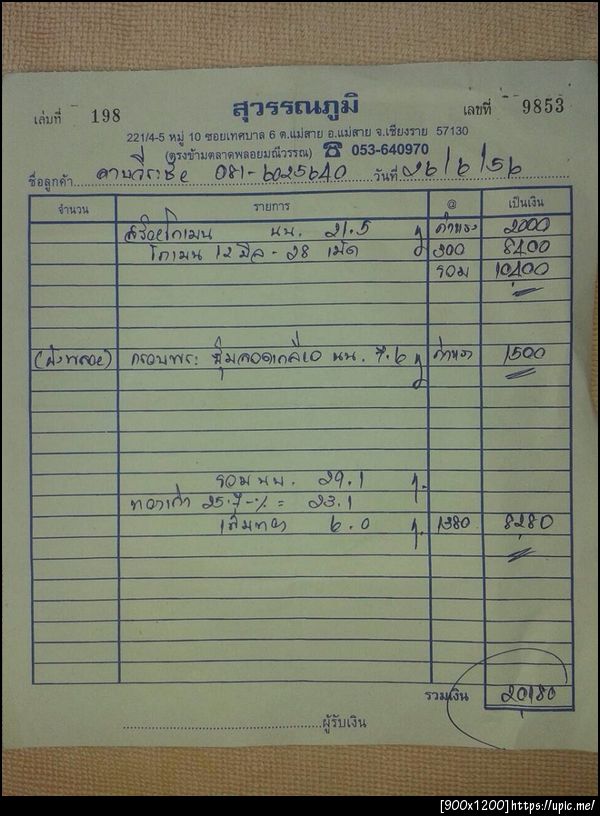 เล่มที่ 198 สุวรรณภูมิ เลขที่ 9853
221/4-5 หมู่ 10 ซอยเทศบาล 6 ต.แม่สาย อ.แม่สาย จ.เชียงราย 57130
(ตรงข้ามตลาดพลอยมณีวรรณ) ☎ 053-640970
ชื่อลูกค้า 081-6025640 วันที่ 26/6/56
จำนวน รายการ @ เป็นเงิน
สร้อยโกเมน นน. 21.5 ค่าแรง 2000
โกเมน 12 มิล - 28 เม็ด 300 8400
รวม 10,400
(ฝังพลอย) กรอบพระ ซุ้มลวดเกลียว นน. 7.6 ค่าแรง 1500
รวม นน. 29.1
ทองเก่า 25.7 -% = 23.1
เพิ่มทอง 6.0 1380 8,280
รวมเงิน 20,180
ผู้รับเงิน
[900x1200]https://upic.me/